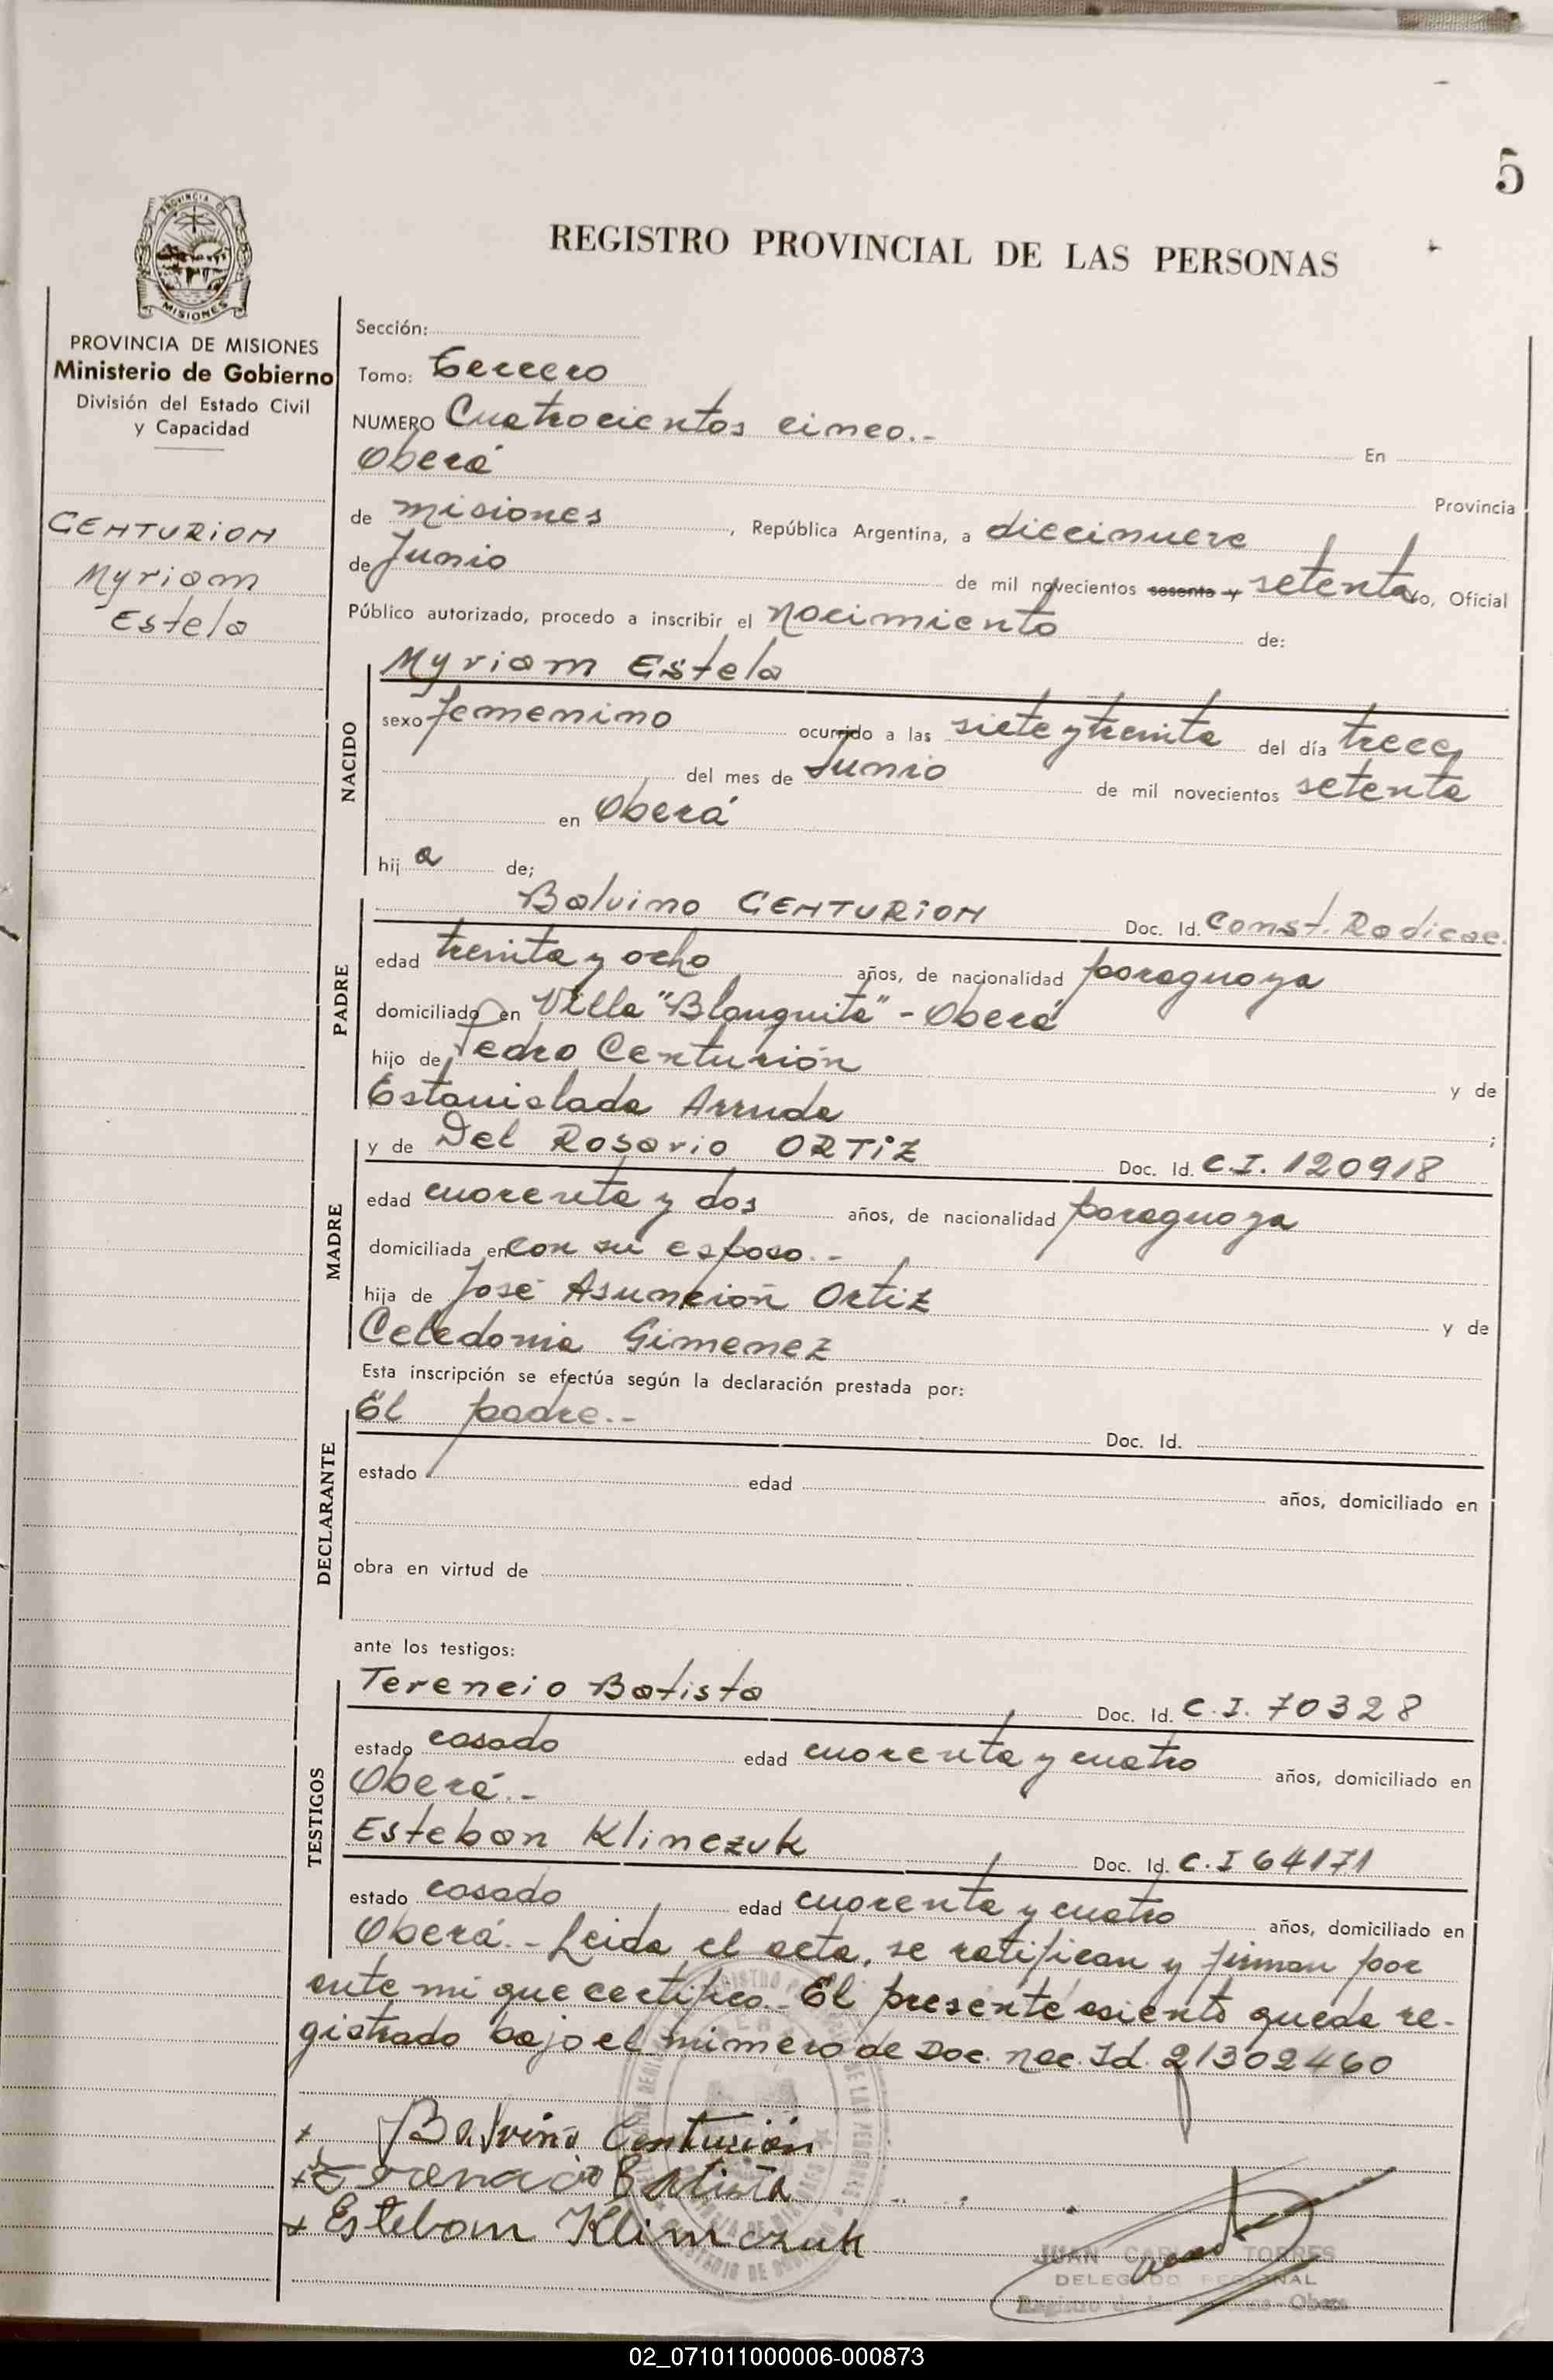 5
PROVINCIA DE
MISIONES
REGISTRO PROVINCIAL DE LAS PERSONAS
PROVINCIA DE MISIONES
Ministerio de Gobierno
División del Estado Civil
y Capacidad
CENTURION
Myriam
Estela
Sección:
Tomo: Tercero
NUMERO Cuatrocientos cinco.- En
Oberá Provincia
de misiones, República Argentina, a diecinueve
de Junio de mil novecientos sesenta y setenta yo, Oficial
Público autorizado, procedo a inscribir el nacimiento de:
NACIDO
Myriam Estela
sexo femenino ocurrido a las siete y treinta del día trece
del mes de Junio de mil novecientos setenta
en Oberá
hij a de;
PADRE
Balvino CENTURION Doc. Id. Const. Radicac.
edad treinta y ocho años, de nacionalidad paraguaya
domiciliado en Villa "Blanquita" - Oberá
hijo de Pedro Centurión y de
Estanislada Arruda ;
MADRE
y de Del Rosario ORTIZ Doc. Id. C.I. 120918
edad cuarenta y dos años, de nacionalidad paraguaya
domiciliada en con su esposo.-
hija de José Asunción Ortiz y de
Celedonia Gimenez
Esta inscripción se efectúa según la declaración prestada por:
DECLARANTE
El padre.- Doc. Id.
estado edad años, domiciliado en
obra en virtud de
ante los testigos:
TESTIGOS
Terencio Batista Doc. Id. C.I. 70328
estado casado edad cuarenta y cuatro años, domiciliado en
Oberá.-
Esteban Klinczuk Doc. Id. C.I 64171
estado casado edad cuarenta y cuatro años, domiciliado en
Oberá.- Leida el acta, se ratifican y firman por
ante mi que certifico.- El presente asiento queda re-
gistrado bajo el número de Doc. Nac. Id. 21302460
Balvino Centurión
Batista
Esteban Klimczuk
JUAN CARLOS TORRES
DELEGADO REGIONAL
02_071011000006-000873